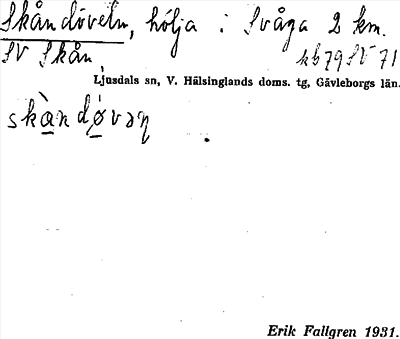 Skåndöveln, hölja i Svåga 2 km.
SV Skån, kb 79 SV 71
Ljusdals sn, V. Hälsinglands doms. tg, Gävleborgs län.
skàndǿvəɳ
Erik Fallgren 1931.